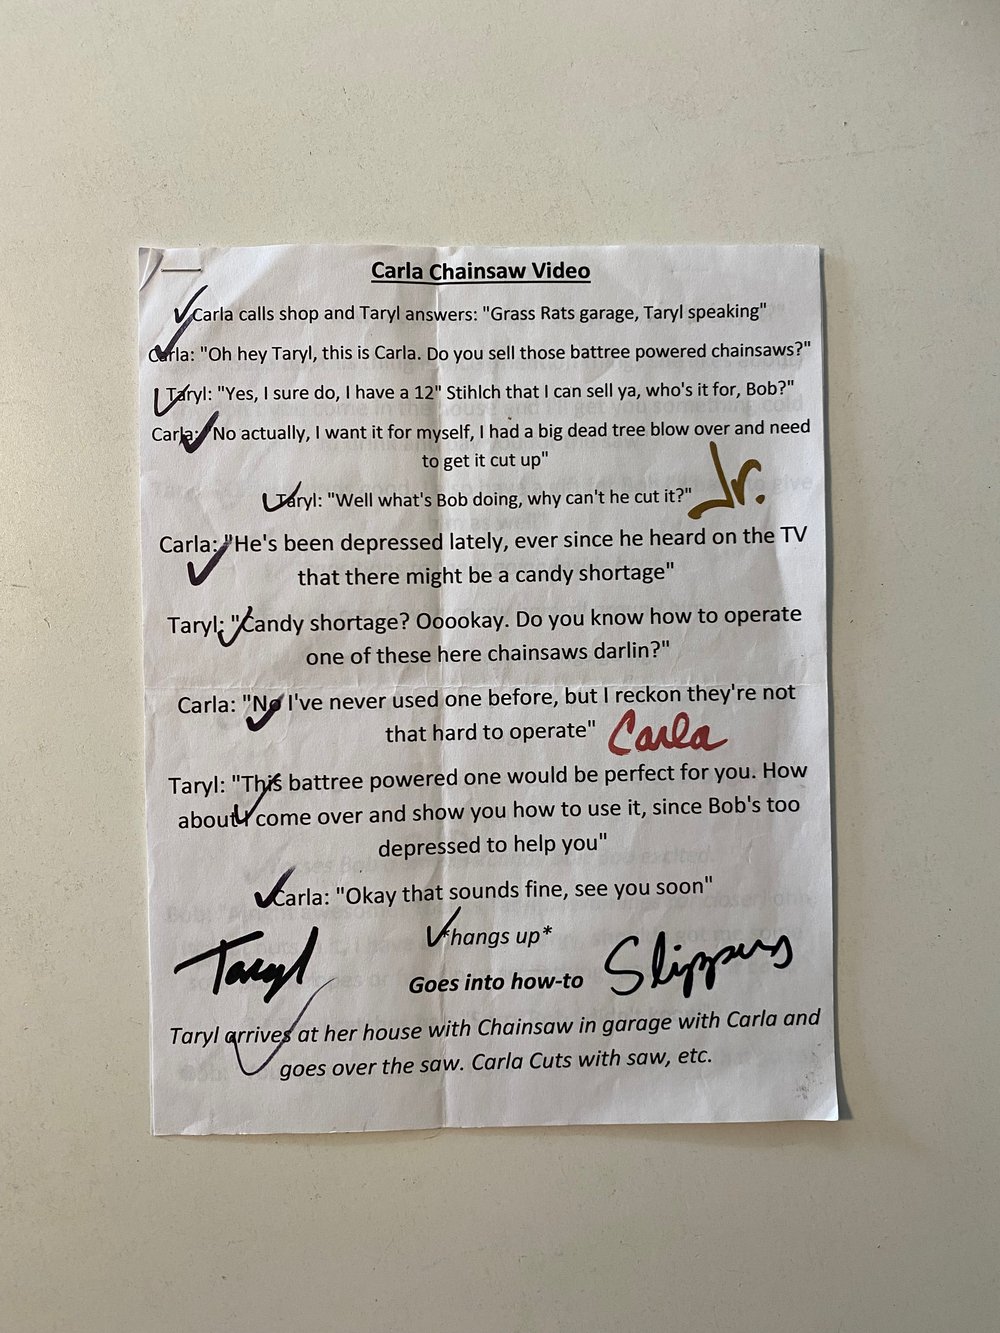 Carla Chainsaw Video
Carla calls shop and Taryl answers: "Grass Rats garage, Taryl speaking"
Carla: "Oh hey Taryl, this is Carla. Do you sell those battree powered chainsaws?"
Taryl: "Yes, I sure do, I have a 12" Stihlch that I can sell ya, who's it for, Bob?"
Carla: "No actually, I want it for myself, I had a big dead tree blow over and need
to get it cut up"
Taryl: "Well what's Bob doing, why can't he cut it?"
Jr.
Carla: "He's been depressed lately, ever since he heard on the TV
that there might be a candy shortage"
Taryl: "Candy shortage? Ooookay. Do you know how to operate
one of these here chainsaws darlin?"
Carla: "No I've never used one before, but I reckon they're not
that hard to operate"
Carla
Taryl: "This battree powered one would be perfect for you. How
about I come over and show you how to use it, since Bob's too
depressed to help you"
Carla: "Okay that sounds fine, see you soon"
*hangs up*
Taryl
Goes into how-to
Slippers
Taryl arrives at her house with Chainsaw in garage with Carla and
goes over the saw. Carla Cuts with saw, etc.